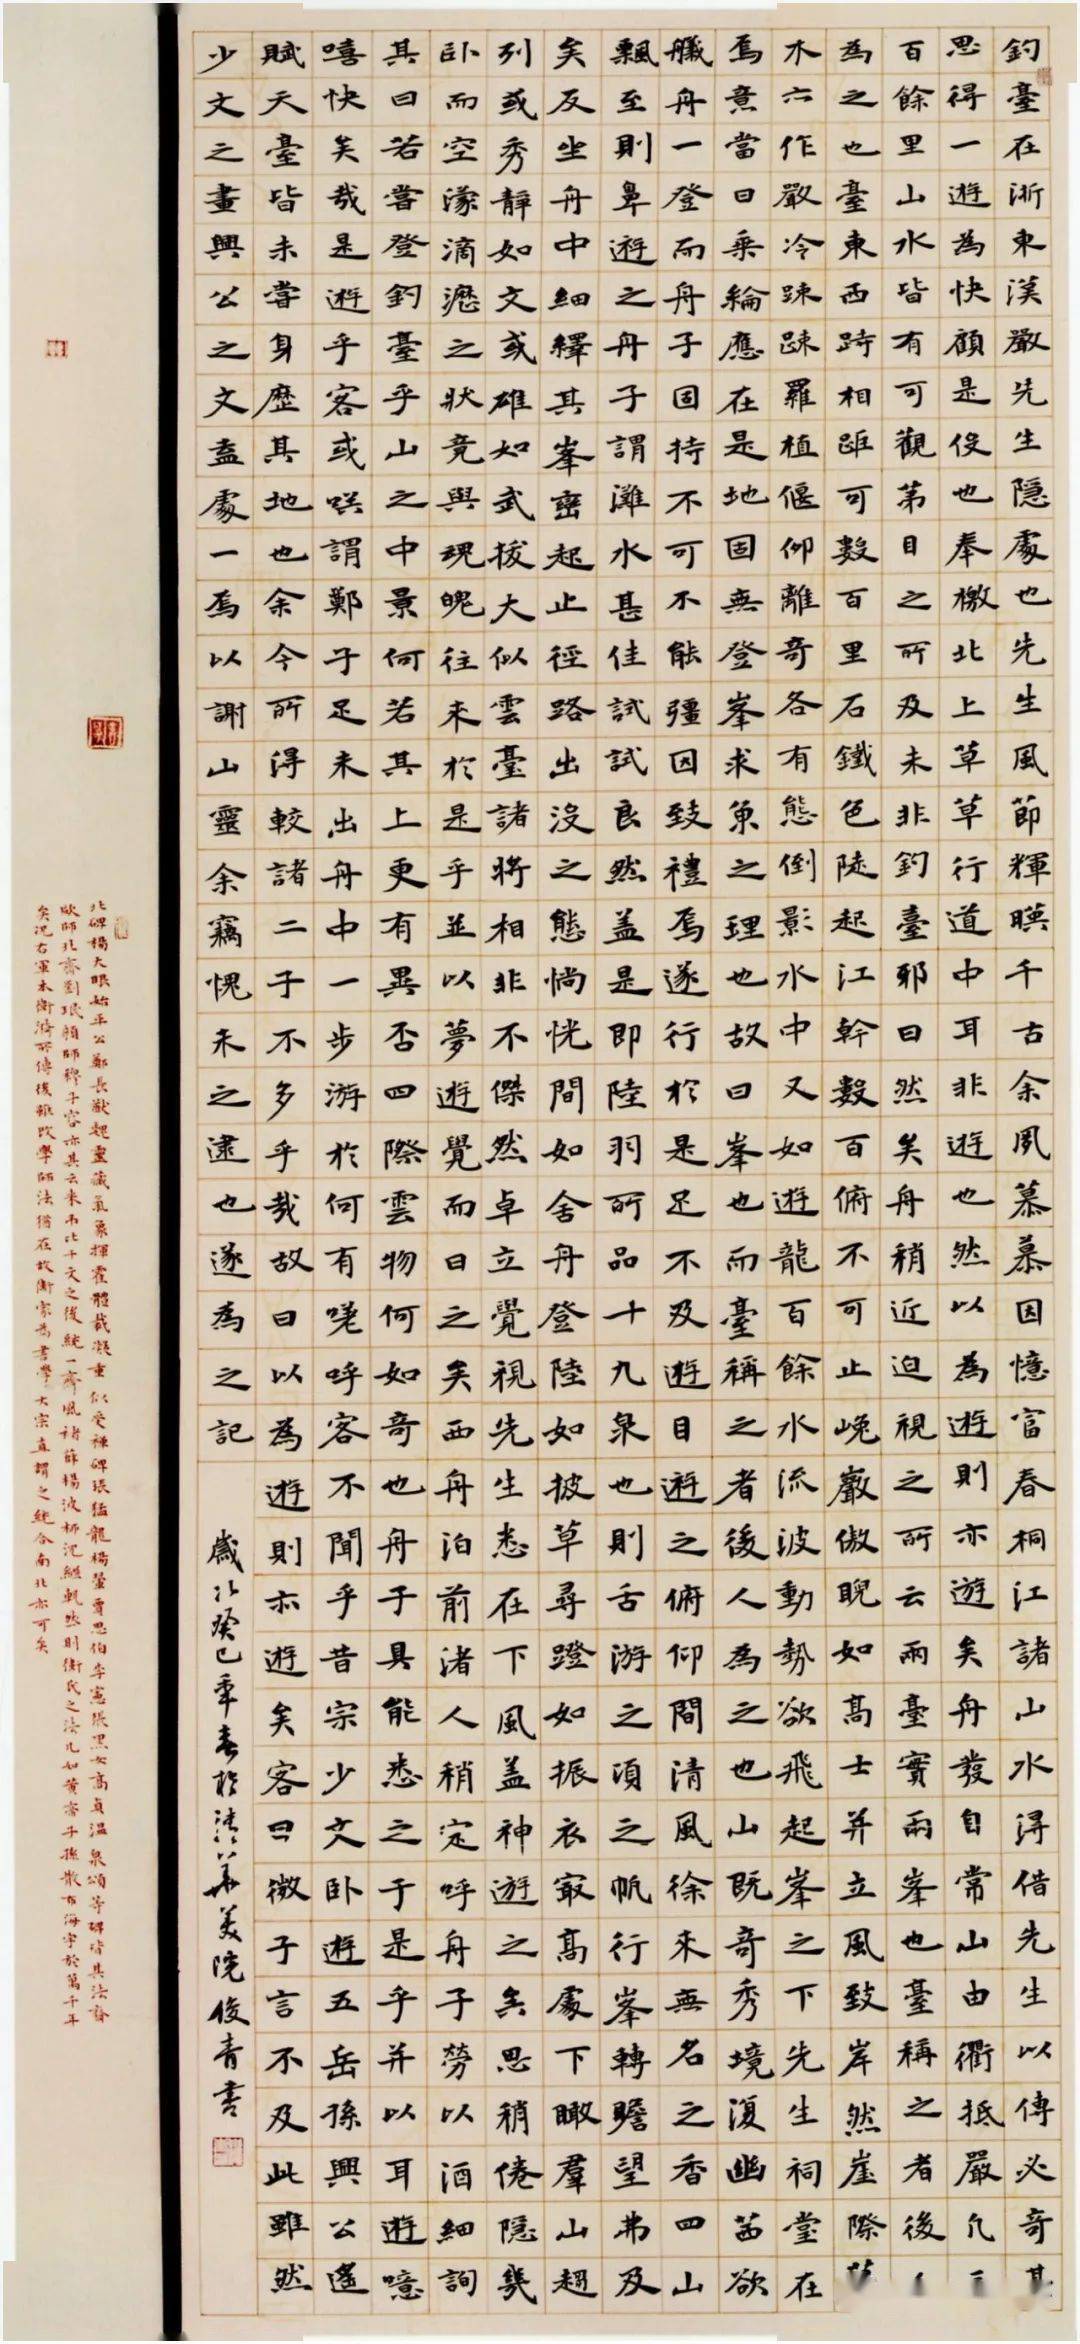 釣臺在浙東漢嚴先生隱處也先生風節輝暎千古余夙慕慕因憶富春桐江諸山水淂借先生以傳必奇甚
思得一遊為快顧是役也奉檄北上草草行道中耳非遊也然以為遊則亦遊矣舟發自常山由衢抵嚴凡三
百餘里山水皆有可觀第目之所及未非釣臺耶曰然矣舟稍近迫視之所云兩臺實兩峯也臺稱之者後人
為之也臺東西跱相距可數百里石鐵色陡起江幹數百俯不可止巉巖傲睨如高士并立風致岸然崖際草
木六作嚴冷踈踈羅植偃仰離奇各有態倒影水中又如遊龍百餘水流波動勢欲飛起峯之下先生祠堂在
焉意當日乘綸應在是地固無登峯求魚之理也故曰峯也而臺稱之者後人為之也山既奇秀境復幽茜欲
艤舟一登而舟子固持不可不能彊因致禮焉遂行於是足不及遊目遊之俯仰間清風徐來無名之香四山
飄至則鼻遊之舟子謂灘水甚佳試試良然盖是即陸羽所品十九泉也則舌游之頃之帆行峯轉瞻望弗及
矣反坐舟中細繹其峯巒起止徑路出沒之態惝恍間如舍舟登陸如披草尋蹬如振衣最高處下瞰羣山趨
列或秀靜如文或雄如武拔大似雲臺諸將相非不傑然卓立覺視先生悉在下風盖神遊之矣思稍倦隱幾
卧而空濛滴瀝之狀竟與魂魄往来於是乎並以夢遊覺而日之矣西舟泊前渚人稍定呼舟子勞以酒細詢
其曰若嘗登釣臺乎山之中景何若其上更有異否四際雲物何如奇也舟子具能悉之于是乎并以耳遊噫
嘻快矣哉是遊乎客或咲謂鄭子足未出舟中一步游於何有嗟呼客不聞乎昔宗少文卧遊五岳孫興公遥
賦天臺皆未嘗身歷其地也余今所淂較諸二子不多乎哉故曰以為遊則亦遊矣客曰微子言不及此雖然
少文之畫興公之文盍處一焉以謝山靈余竊愧未之逮也遂為之記
歲次癸巳年春於清華美院俊青書
北碑楊大眼始平公鄭長猷魏靈藏氣象揮霍體裁凝重似受禅碑張猛龍楊翬賈思伯李憲張黑女高貞温泉頌等碑皆其法裔
歐師北齊劉珉顏師穆子容亦其云来此千文之後統一齊風褚薛揚波柳沈繼軌然則衛氏之法几如黄帝子孫散布海宇於萬千年
矣况右軍本衛漪所傳後雖改學師法猶在故衛家為書學大宗直謂之統合南北亦可矣